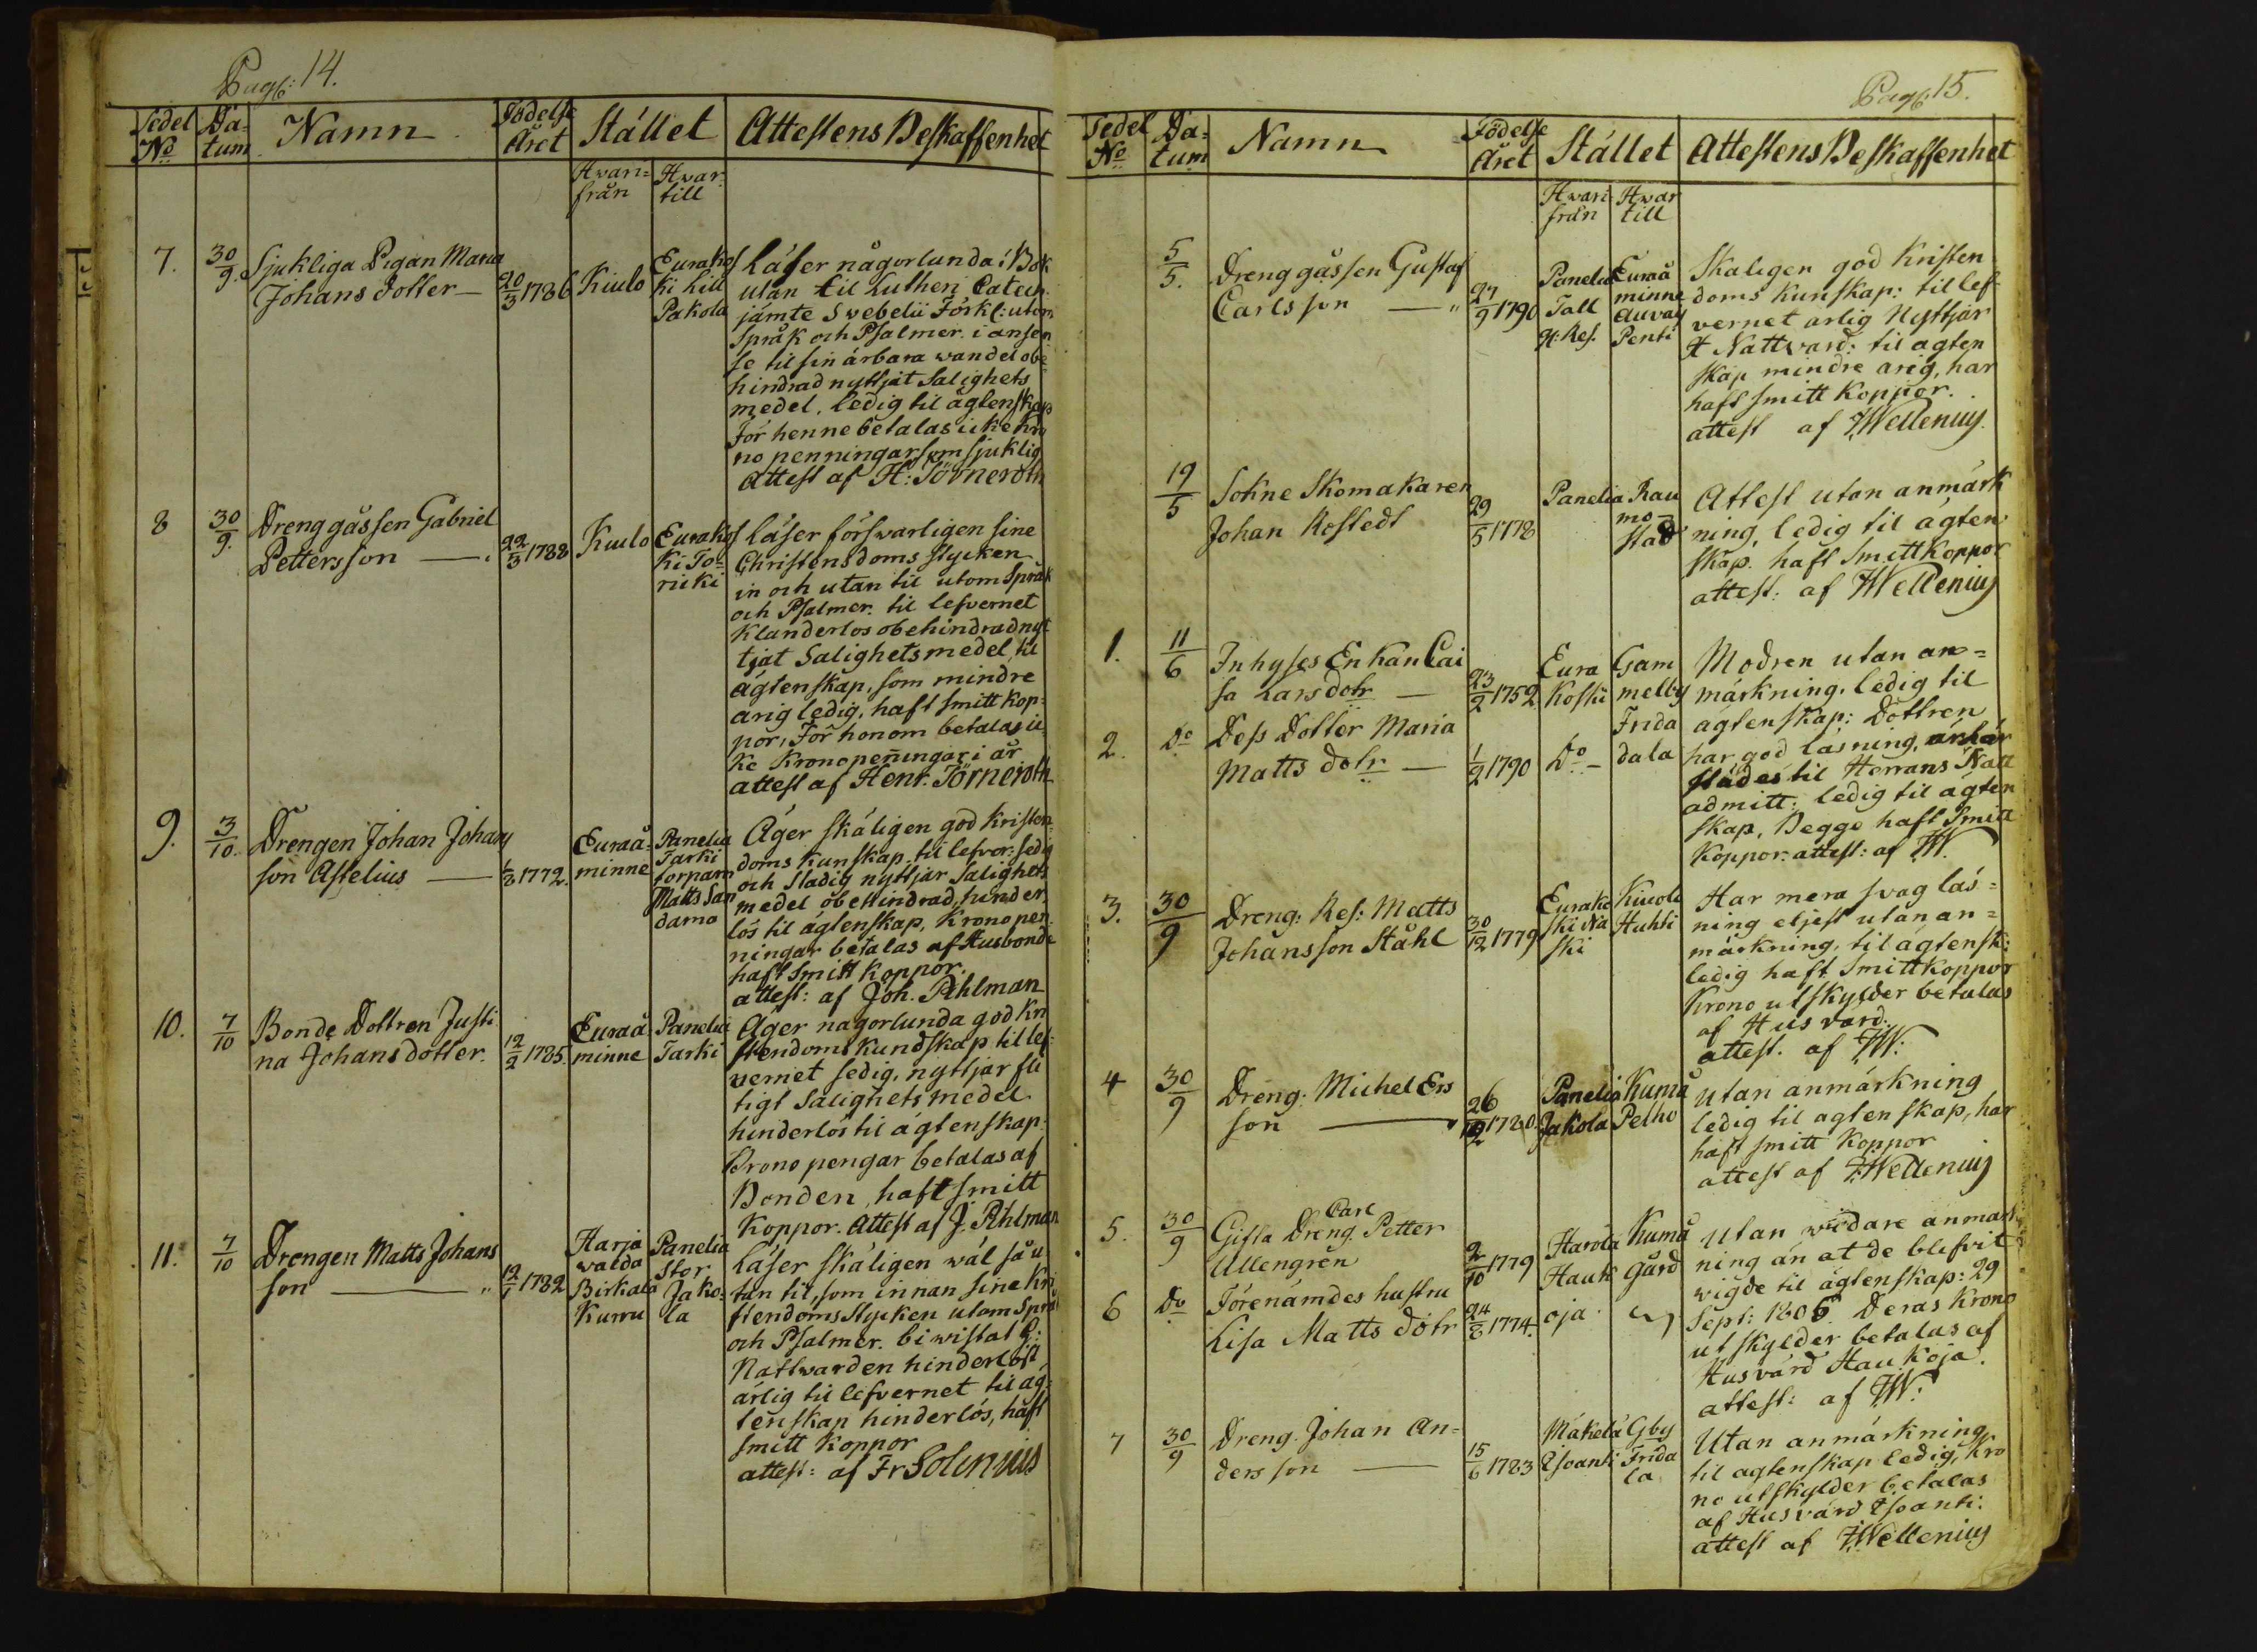 Pag: 14.
Sedel No
Datum
Namn
Födelse Året
Stället
Attestens Beskaffenhet
Hwari=
från
Hwar
till
7.
30/9.
Sjukliga Pigan Maria
Johans dotter —
20/3 1786
Kiulo
Eurakos
ki Lill
Pakola
Läser någorlunda i Bok
utan til Luthen Catech:
jämte Swebelii Förkl: utom
Språk och Psalmer. i anseen
se til sin ärbara wandel obe
hindrad nyttjat Salighets
medel, ledig til ägtenskap
För henne betalas icke Kro
no penningar som sjuklig
Attest af H: Törneroth
8
30/9.
Drenggåssen Gabriel
Pettersson —
22/3 1788
Kiulo
Eurakos
ki To=
ricki
läser förswarligen sine
Christensdoms stycken
in och utan til utom Språk
och Psalmer. til lefvernet
klanderlos obehindrad nyt
tjat Salighets medel, til
ägtenskap, som mindre
årig ledig, haft smitt kop=
por, För honom betalas ic
ke Krono peñingar i år
attest af Henr. Törneroth
9.
3/10.
Drengen Johan Johans
son Astelius —
1/8 1772.
Euraå=
minne
Panelia
Tarki
torpare
Matts San
dama
Äger skäligen god Kristen
doms Kunskap, til lefver: sedig
och Stadig nyttjar Salighets
medel obehindrad, hinder
lös til ägtenskap, Krono pen
ningar betalas af Husbonde
haft Smitt koppor.
attest: af Joh. Pihlman
10.
7/10
Bonde Dottren Justi
na Johans dotter.
12/2 1785.
Euraå
minne
Panelia
Tarki
Äger nagorlunda god Kri
stendoms Kundskap til lef=
vernet sedig, nyttjar fli
tigt Salighets medel
hinderlös til ägtenskap.
Krono pengar betalas af
Bonden, haft smitt
koppor. Attest af J. Pihlman
11.
7/10
Drengen Matts Johans
son —
12/1 1782
Harja
walda
Birkala
Kurru
Panelia
Stor
Jako=
la
Läser skäligen wäl så u
tan til, som innan sine Kri
stendoms Stycken utom Språk
och Psalmer. biwistat H:
Nattwarden hinderlöst
ärlig til lefvernet til äg=
tenskap hinderlös, haft
smitt koppor
attest: af Fr Solenius
Pag: 15.
Sedel No
Datum
Namn
Födelse Året
Stället
Attestens Beskaffenhet
Hwari
från
Hwar
till
5/5.
Dreng gåssen Gustaf
Carlsson —
27/9 1790
Panelia
Tall
q: Res.
Euraå
minne
Auvay
Penti
Skaligen god Kristen
doms kunskap: til lef=
vernet arlig Nyttjar
H Nattward: til ägten
skap mindre arig, har
haft smitt Koppor.
attest af JWellenius.
19/5
Sokne Skomakaren
Johan Rostedt
29/5 1778
Panelia
Rau
mo=
stad
Attest utan anmärk
ning, ledig til ägten
skap. haft Smittkoppor
attest: af JWellenius
1.
11/6
Inhyses Enkan Cai
sa Larsdotr —
23/2 1752
Eura
Koski
Gam
melby
Frida
dala
Modren utan an=
märkning. ledig til
ägtenskap: Döttren
har god läsning,
städes til Herrans Natt
admitt: ledig til ägten
skap, Begge haft Smitt
koppor. attest: af JW.
2.
Do
Dess Dotter Maria
Matts dotr —
1/2 1790
Do —
3.
30/9
Dreng: Res: Matts
Johansson Ståhl
30/12 1779
Eurako
ski Na
ski
Kiuola
Huhti
Har mera svag läs=
ning eljest utan an=
märkning, til ägtensk:
ledig haft Smittkoppor
Krono utskylder betalas
af Husvärd:
attest. af JW:
4
30/9
Dreng. Michel Ers
son —
26/12 1780
Panelia
Jakola
Kumå
Pelho
Utan anmärkning
ledig til ägtenskap, har
haft smitt Koppor
attest af JWellenius
5.
30/9
Carl
Gifta Dreng Petter
Ullengren
2/10 1779
Harola
Hauk
oja
Kumå
Gård
Utan widare anmärk
ning än at de blefvit
wigde til ägtenskap: 29
Sept: 1806. Deras Krono
utskylder betalas af
Husvärd Haukoja.
attest: af JW:
6
Do
Förenämdes hustru
Lisa Matts dotr
24/8 1774.
7
30/9
Dreng. Johan An=
dersson —
15/6 1783
Mäkelä
Isoanti
Gby
Frida
la
Utan anmärkning
til ägtenskap ledig, Kro
no utskylder betalas
af Husvärd Isoanti.
attest af JWellenius